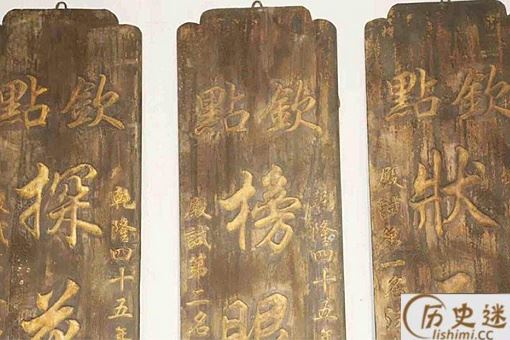 欽點
狀
殿試第一
欽點
隆四十五年
榜眼
殿試第二名
欽點
乾隆四十五年
探花
历史迷
lishimi.cc